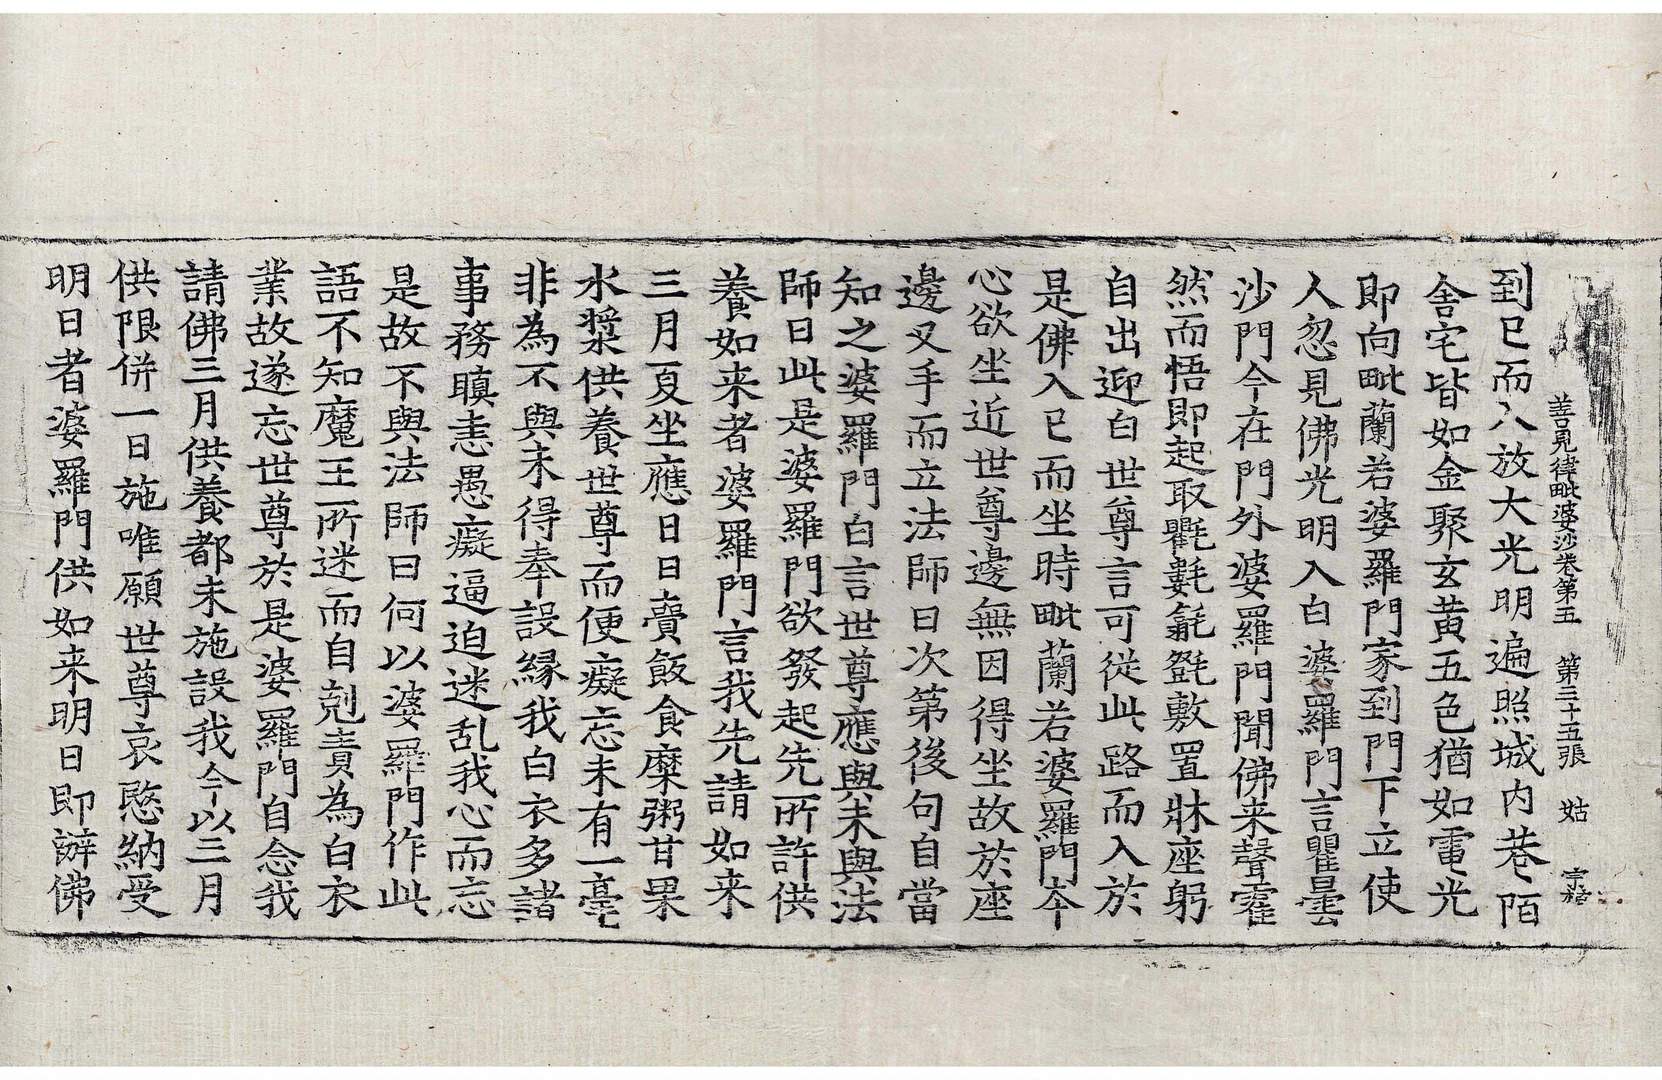 善見律毗婆沙卷第五　第三十五張　姑
到已而入放大光明遍照城內巷陌
舍宅皆如金聚玄黃五色猶如電光
即向毗蘭若婆羅門家到門下立使
人忽見佛光明入白婆羅門言瞿曇
沙門今在門外婆羅門聞佛来聲霍
然而悟即起取氍氀毹㲪敷置牀座躬
自出迎白世尊言可從此路而入於
是佛入已而坐時毗蘭若婆羅門本
心欲坐近世尊邊無因得坐故於座
邊叉手而立法師曰次第後句自當
知之婆羅門白言世尊應與未與法
師曰此是婆羅門欲發起先所許供
養如来者婆羅門言我先請如来
三月夏坐應日日齎飯食糜粥甘果
水漿供養世尊而便癡忘未有一毫
非為不與未得奉設緣我白衣多諸
事務瞋恚愚癡逼迫迷乱我心而忘
是故不與法師曰何以婆羅門作此
語不知魔王所迷而自剋責為白衣
業故遂忘世尊於是婆羅門自念我
請佛三月供養都未施設我今以三月
供限併一日施唯願世尊哀愍納受
明日者婆羅門供如来明日即辦佛